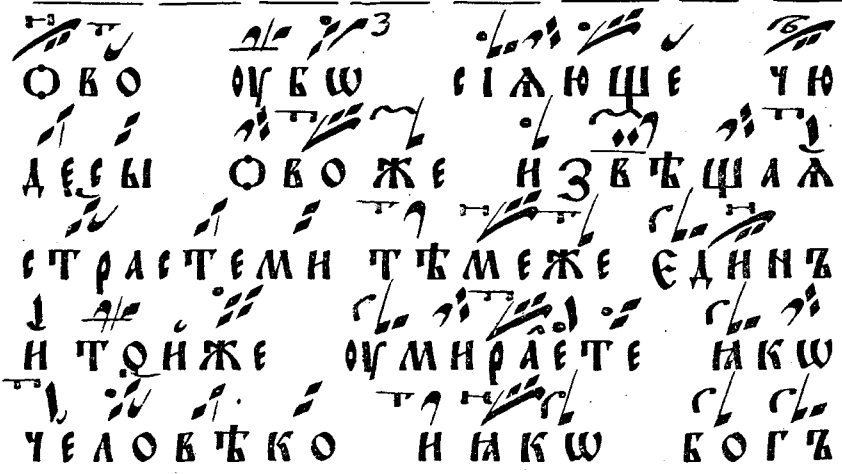 ѻво ѹбѡ сїѧюще чю
десы ѻвоже извѣщаѧ
страстеми тѣмеже єдинъ
и тойже ѹмираете ꙗкѡ
человѣко и ꙗкѡ богъ